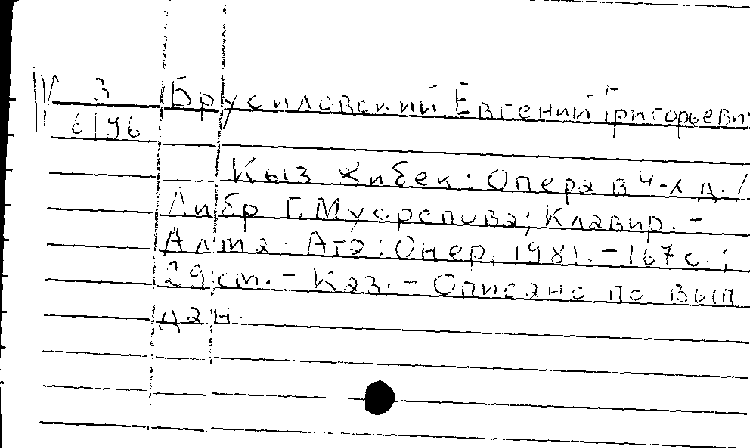 Ш 3
6196
Брусиловский Евгений Григорьеви
Кыз Жибек: Опера в 4-х д. /
Либр Г. Мусрепова; Клавир. -
Алма-Ата: Онер, 1981. - 167 с.;
29 см. - Каз. - Описано по вып
дан.